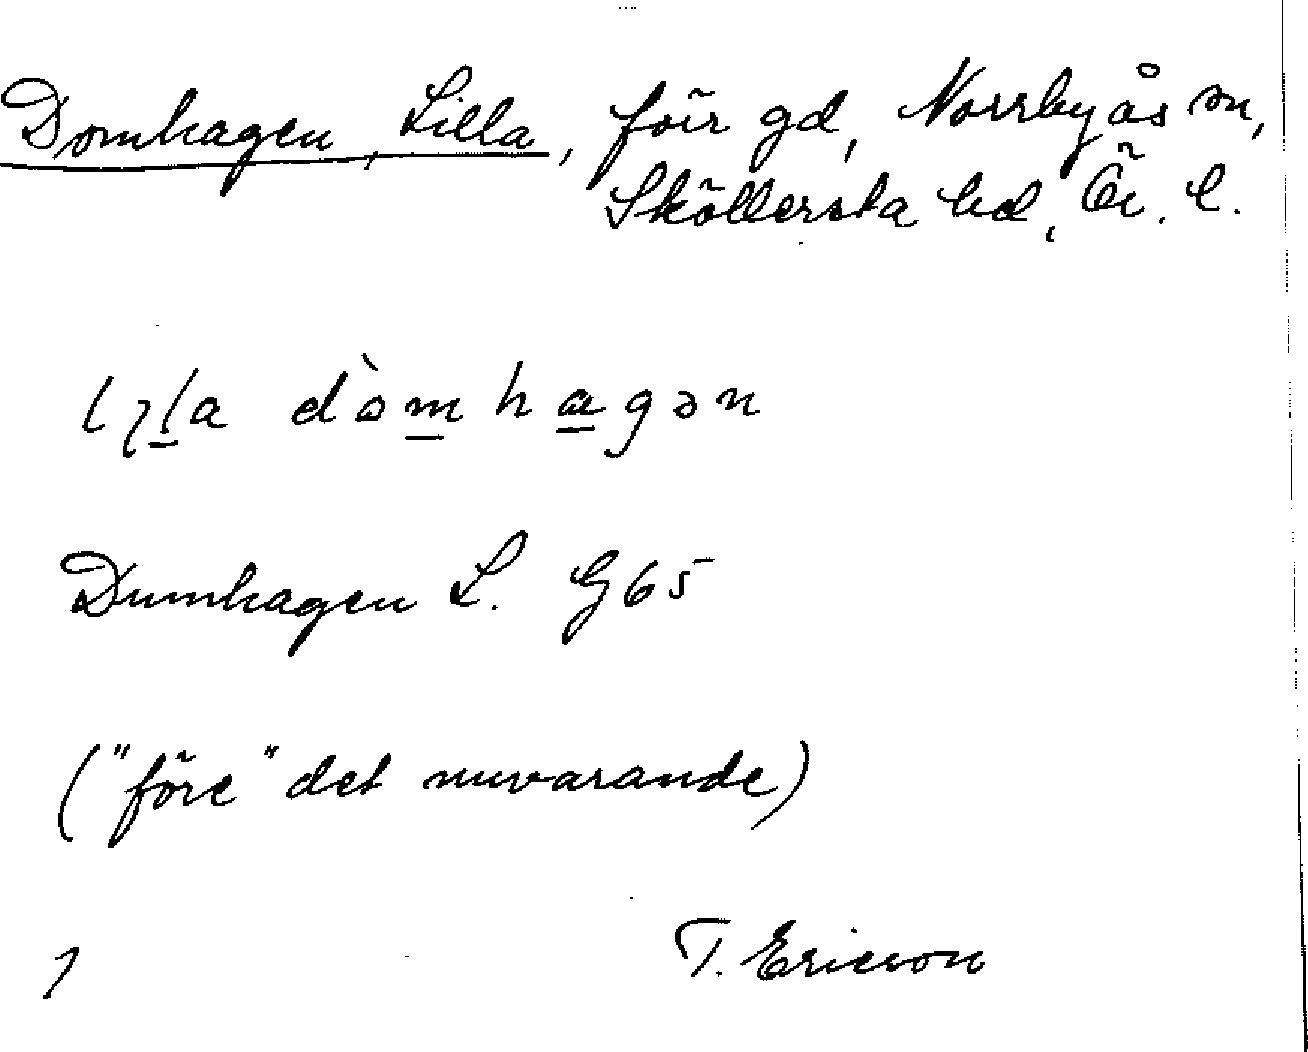 Domhagen, Lilla, förr gd, Norrbyås sn,
Sköllersta hd, Ör. l.
dòmhagən
Dumhagen L. G65
("före" det nuvarande)
T. Ericson